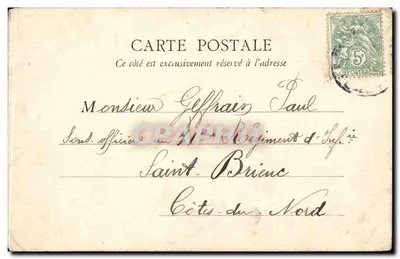 CARTE POSTALE
Ce côté est exclusivement réservé à l'adresse
5c
Monsieur Geffrais Paul
Sous officier au 71e Régiment d'Inf ie
Saint-Brieuc
Côtes-du-Nord